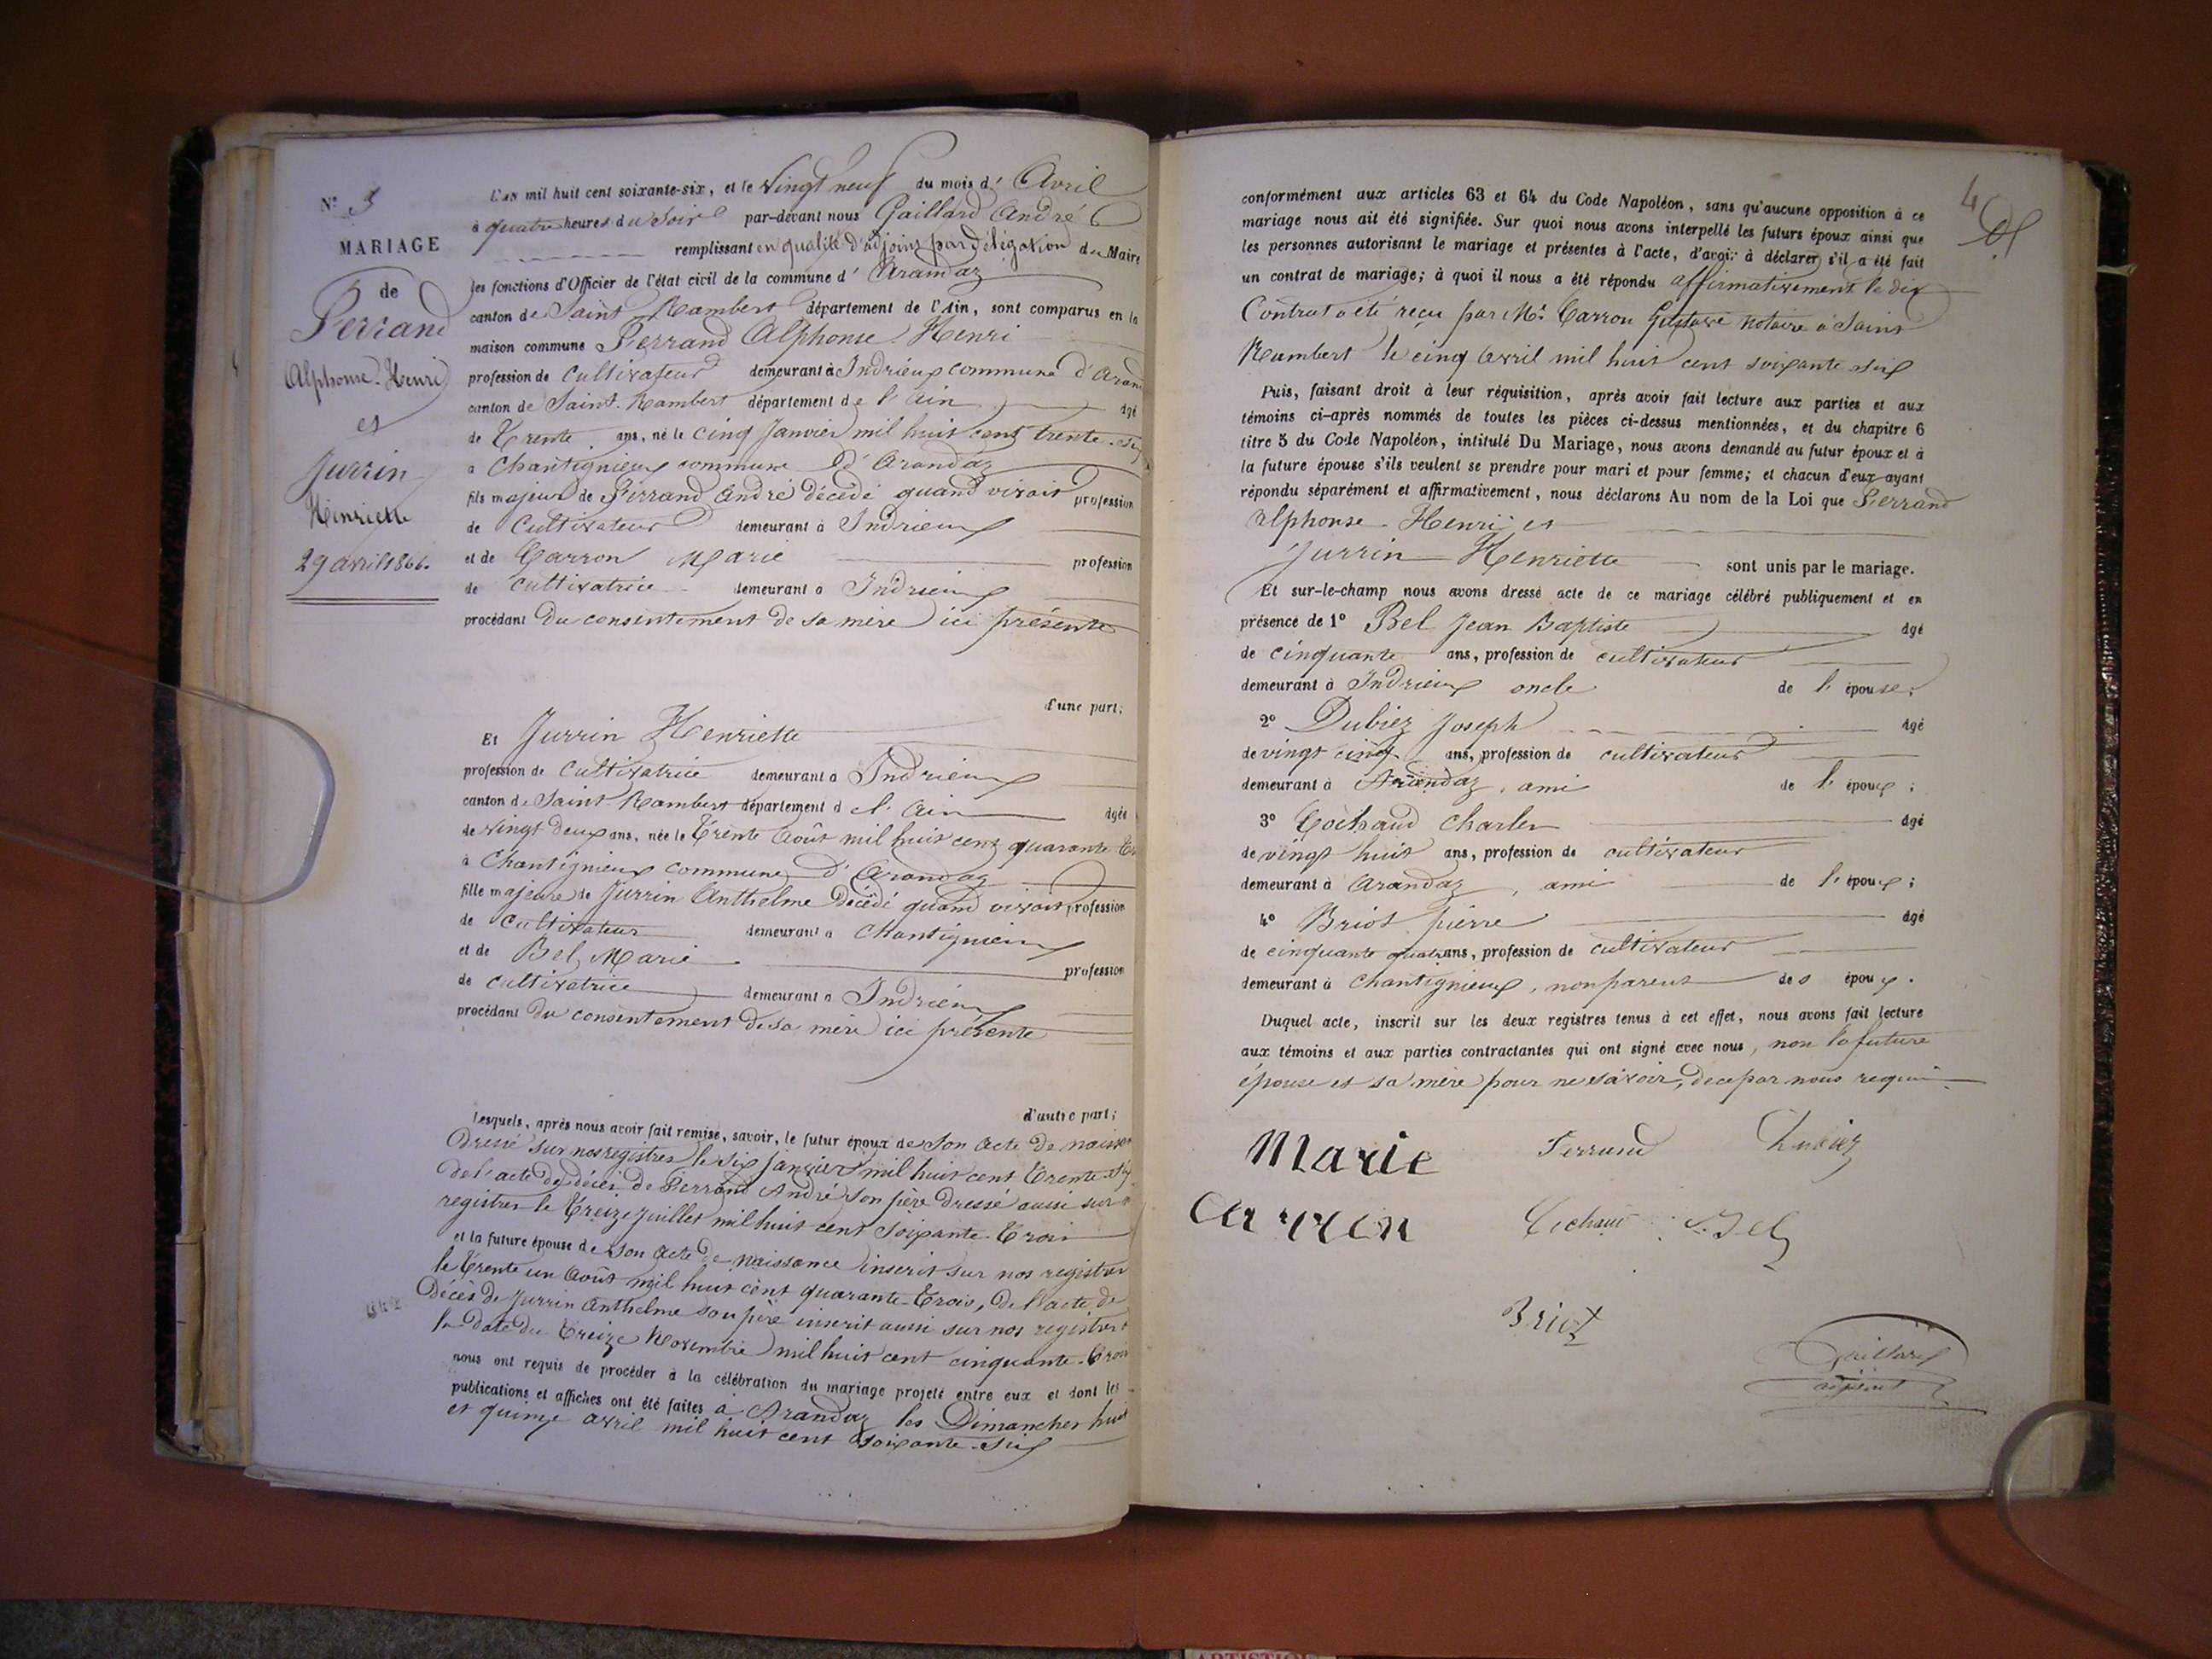 N° 3
MARIAGE
de
Ferrand
Alphonse-Henri
et
Jurrin
Henriette
29 avril 1866.
L'AN mil huit cent soixante-six, et le Vingt neuf du mois d' Avril
à quatre heures du Soir par-devant nous Gaillard André
remplissant en qualité d'adjoint par délégation du Maire
les fonctions d'Officier de l'état civil de la commune d' Arandaz
canton de Saint Rambert département de l'Ain, sont comparus en la
maison commune Ferrand Alphonse Henri
profession de Cultivateur demeurant à Indrieux commune d'Aran
canton de Saint-Rambert département de l'Ain âgé
de Trente ans, né le cinq Janvier mil huit cent trente-six
à Chantignieux commune d'Arandaz
fils majeur de Ferrand André décédé quand vivait profession
de Cultivateur demeurant à Indrieux
et de Carron Marie profession
de cultivatrice demeurant à Indrieux
procédant du consentement de sa mère ici présente
d'une part;
Et Jurrin Henriette
profession de Cultivatrice demeurant à Indrieux
canton de Saint-Rambert département de l'Ain âgée
de vingt deux ans, née le Trente Août mil huit cent quarante
à Chantignieux commune d'Arandaz
fille majeure de Jurrin Anthelme décédé quand vivait profession
de Cultivateur demeurant à Chantignieux
et de Bel Marie profession
de cultivatrice demeurant à Indrieux
procédant du consentement de sa mère ici présente
d'autre part;
Lesquels, après nous avoir fait remise, savoir, le futur époux de Son Acte de naissan
dressé sur nos registres le six janvier mil huit cent trente-six
de l'acte de décès de Ferrand André son père dressé aussi sur
registres le Treize Juillet mil huit cent soixante-Trois
et la future épouse de son acte de naissance inscrit sur nos registres
le trente un Août mil huit cent quarante-Trois, de l'acte de
décès de Jurrin Anthelme son père inscrit aussi sur nos registres
la date du Treize Novembre mil huit cent cinquante-Trois
nous ont requis de procéder à la célébration du mariage projeté entre eux et dont les
publications et affiches ont été faites à Arandaz les Dimanches huit
et quinze avril mil huit cent soixante-six
4
conformément aux articles 63 et 64 du Code Napoléon, sans qu'aucune opposition à ce
mariage nous ait été signifiée. Sur quoi nous avons interpellé les futurs époux ainsi que
les personnes autorisant le mariage et présentes à l'acte, d'avoir à déclarer s'il a été fait
un contrat de mariage; à quoi il nous a été répondu affirmativement le dit
Contrat a été reçu par Me Carron Gustave notaire à Saint
Rambert le cinq avril mil huit cent soixante-six
Puis, faisant droit à leur réquisition, après avoir fait lecture aux parties et aux
témoins ci-après nommés de toutes les pièces ci-dessus mentionnées, et du chapitre 6
titre 5 du Code Napoléon, intitulé Du Mariage, nous avons demandé au futur époux et à
la future épouse s'ils veulent se prendre pour mari et pour femme; et chacun d'eux ayant
répondu séparément et affirmativement, nous déclarons Au nom de la Loi que Ferrand
alphonse-Henri et
Jurrin Henriette sont unis par le mariage.
Et sur-le-champ nous avons dressé acte de ce mariage célébré publiquement et en
présence de 1° Bel Jean Baptiste âgé
de cinquante ans, profession de cultivateur
demeurant à Indrieux oncle de l'épouse;
2° Dubiez Joseph âgé
de vingt cinq ans, profession de cultivateur
demeurant à Arandaz, ami de l'époux;
3° Cochaud Charles âgé
de vingt huit ans, profession de cultivateur
demeurant à Arandaz, ami de l'époux;
4° Briot pierre âgé
de cinquante quatre ans, profession de cultivateur
demeurant à Chantignieux, non parent des époux.
Duquel acte, inscrit sur les deux registres tenus à cet effet, nous avons fait lecture
aux témoins et aux parties contractantes qui ont signé avec nous, non la future
épouse et sa mère pour ne savoir, de ce par nous requis
Marie Ferrand Dubiez
Carron Cochaud Bel
Briot
Gaillard
adjoint